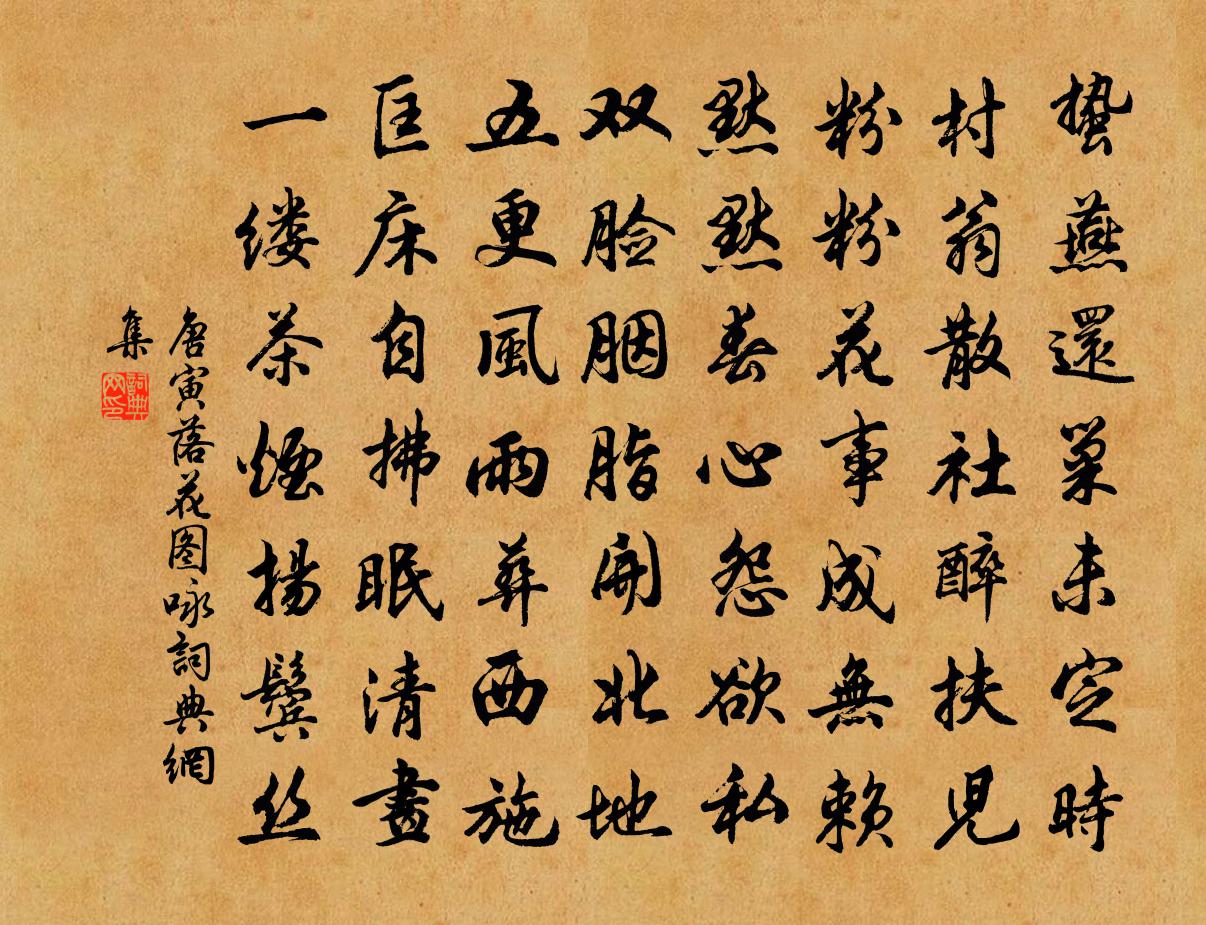 蛰燕還巢未定時
村翁散社醉扶兒
粉粉花事成無賴
默默春心怨欲私
双脸胭脂開北地
五更風雨葬西施
匡床自拂眠清晝
一缕茶煙揚鬢丝
唐寅落花图咏詞典網
集
詞典
网印